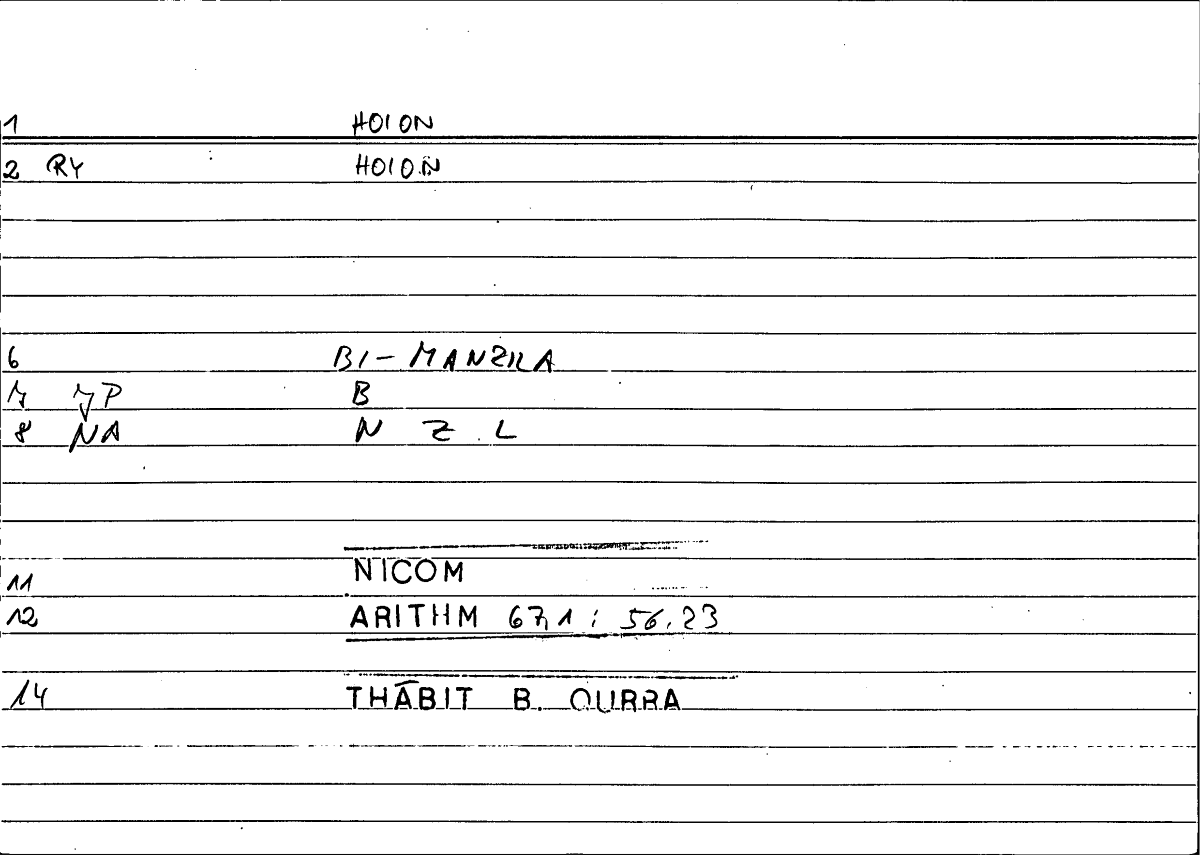 1 HOION
2 RY HOION
6 BI-MANZILA
7 JP B
8 NA N Z L
11 NICOM
12 ARITHM 67,1 : 56.23
14 THĀBIT B. QURRA